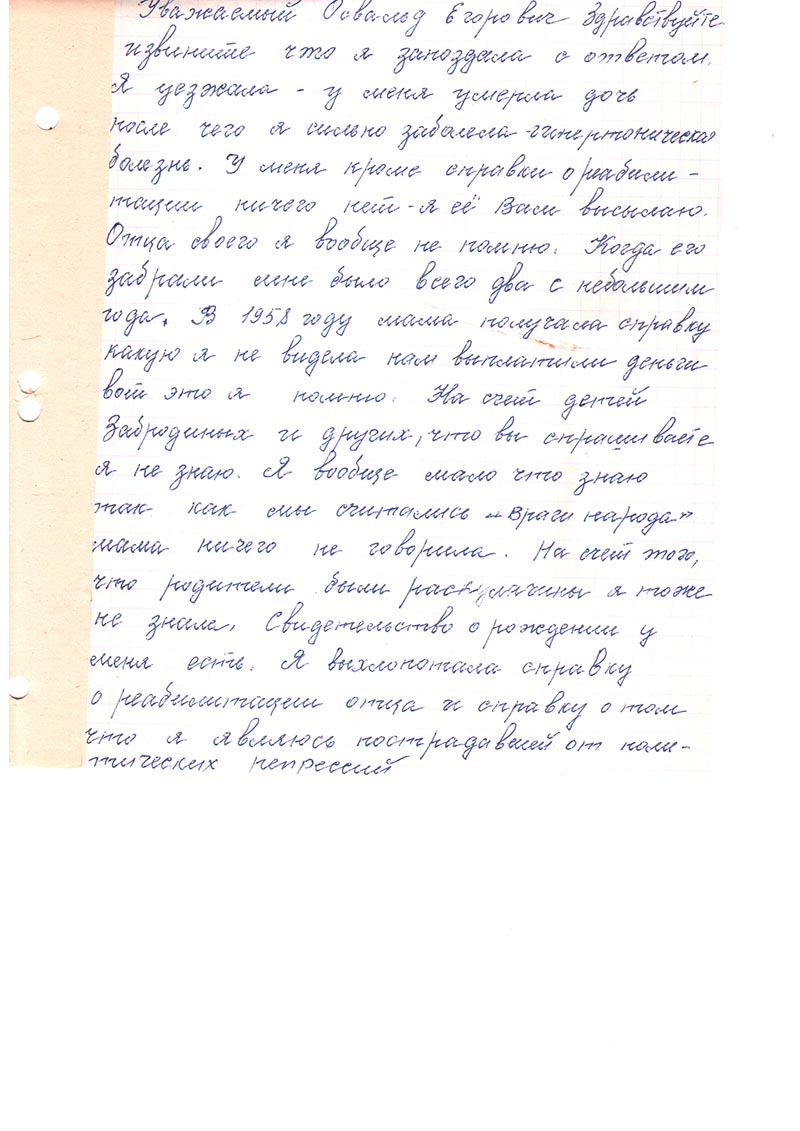 Уважаемый Освальд Егорович Здравствуйте
извините что я запоздала с ответом.
Я уезжала - у меня умерла дочь
после чего я сильно заболела -гипертоническая
болезнь. У меня кроме справки о реабили-
тации ничего нет - я её Вам высылаю.
Отца своего я вообще не помню. Когда его
забрали мне было всего два с небольшим
года. В 1958 году мама получала справку
какую я не видела нам выплатили деньги
вот это я помню. На счет детей
Забродиных и других, что вы спрашиваете
я не знаю. Я вообще мало что знаю
так как мы считались "враги народа"
мама ничего не говорила. На счет того,
что родители были раскулачины я тоже
не знала. Свидетельство о рождении у
меня есть. Я выхлопотала справку
о реабилитации отца и справку о том
что я являюсь пострадавшей от поли-
тических репрессий